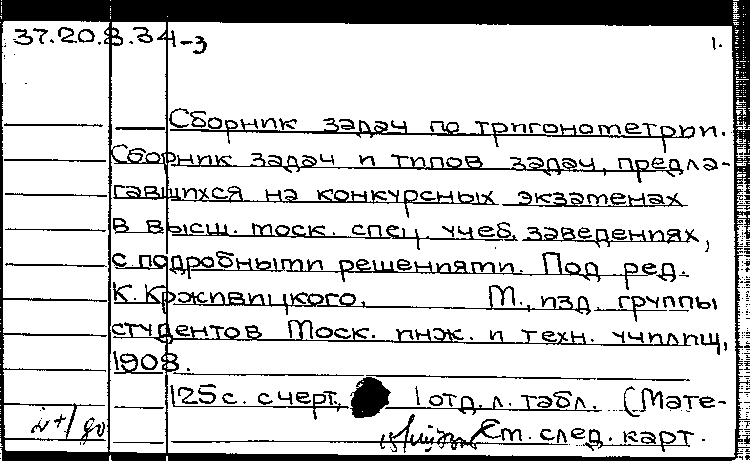 37.20.8.34-3
1.
Сборник задач по тригонометрии.
Сборник задач и типов задач, предла-
гавшихся на конкурсных экзаменах
в высш. моск. спец. учеб. заведениях,
с подробными решениями. Под ред.
К. Крживицкого. М., изд. группы
студентов Моск. инж. и техн. училищ,
1908.
125 с. с черт., 1 отд. л. табл. (Мате-
См. след. карт.